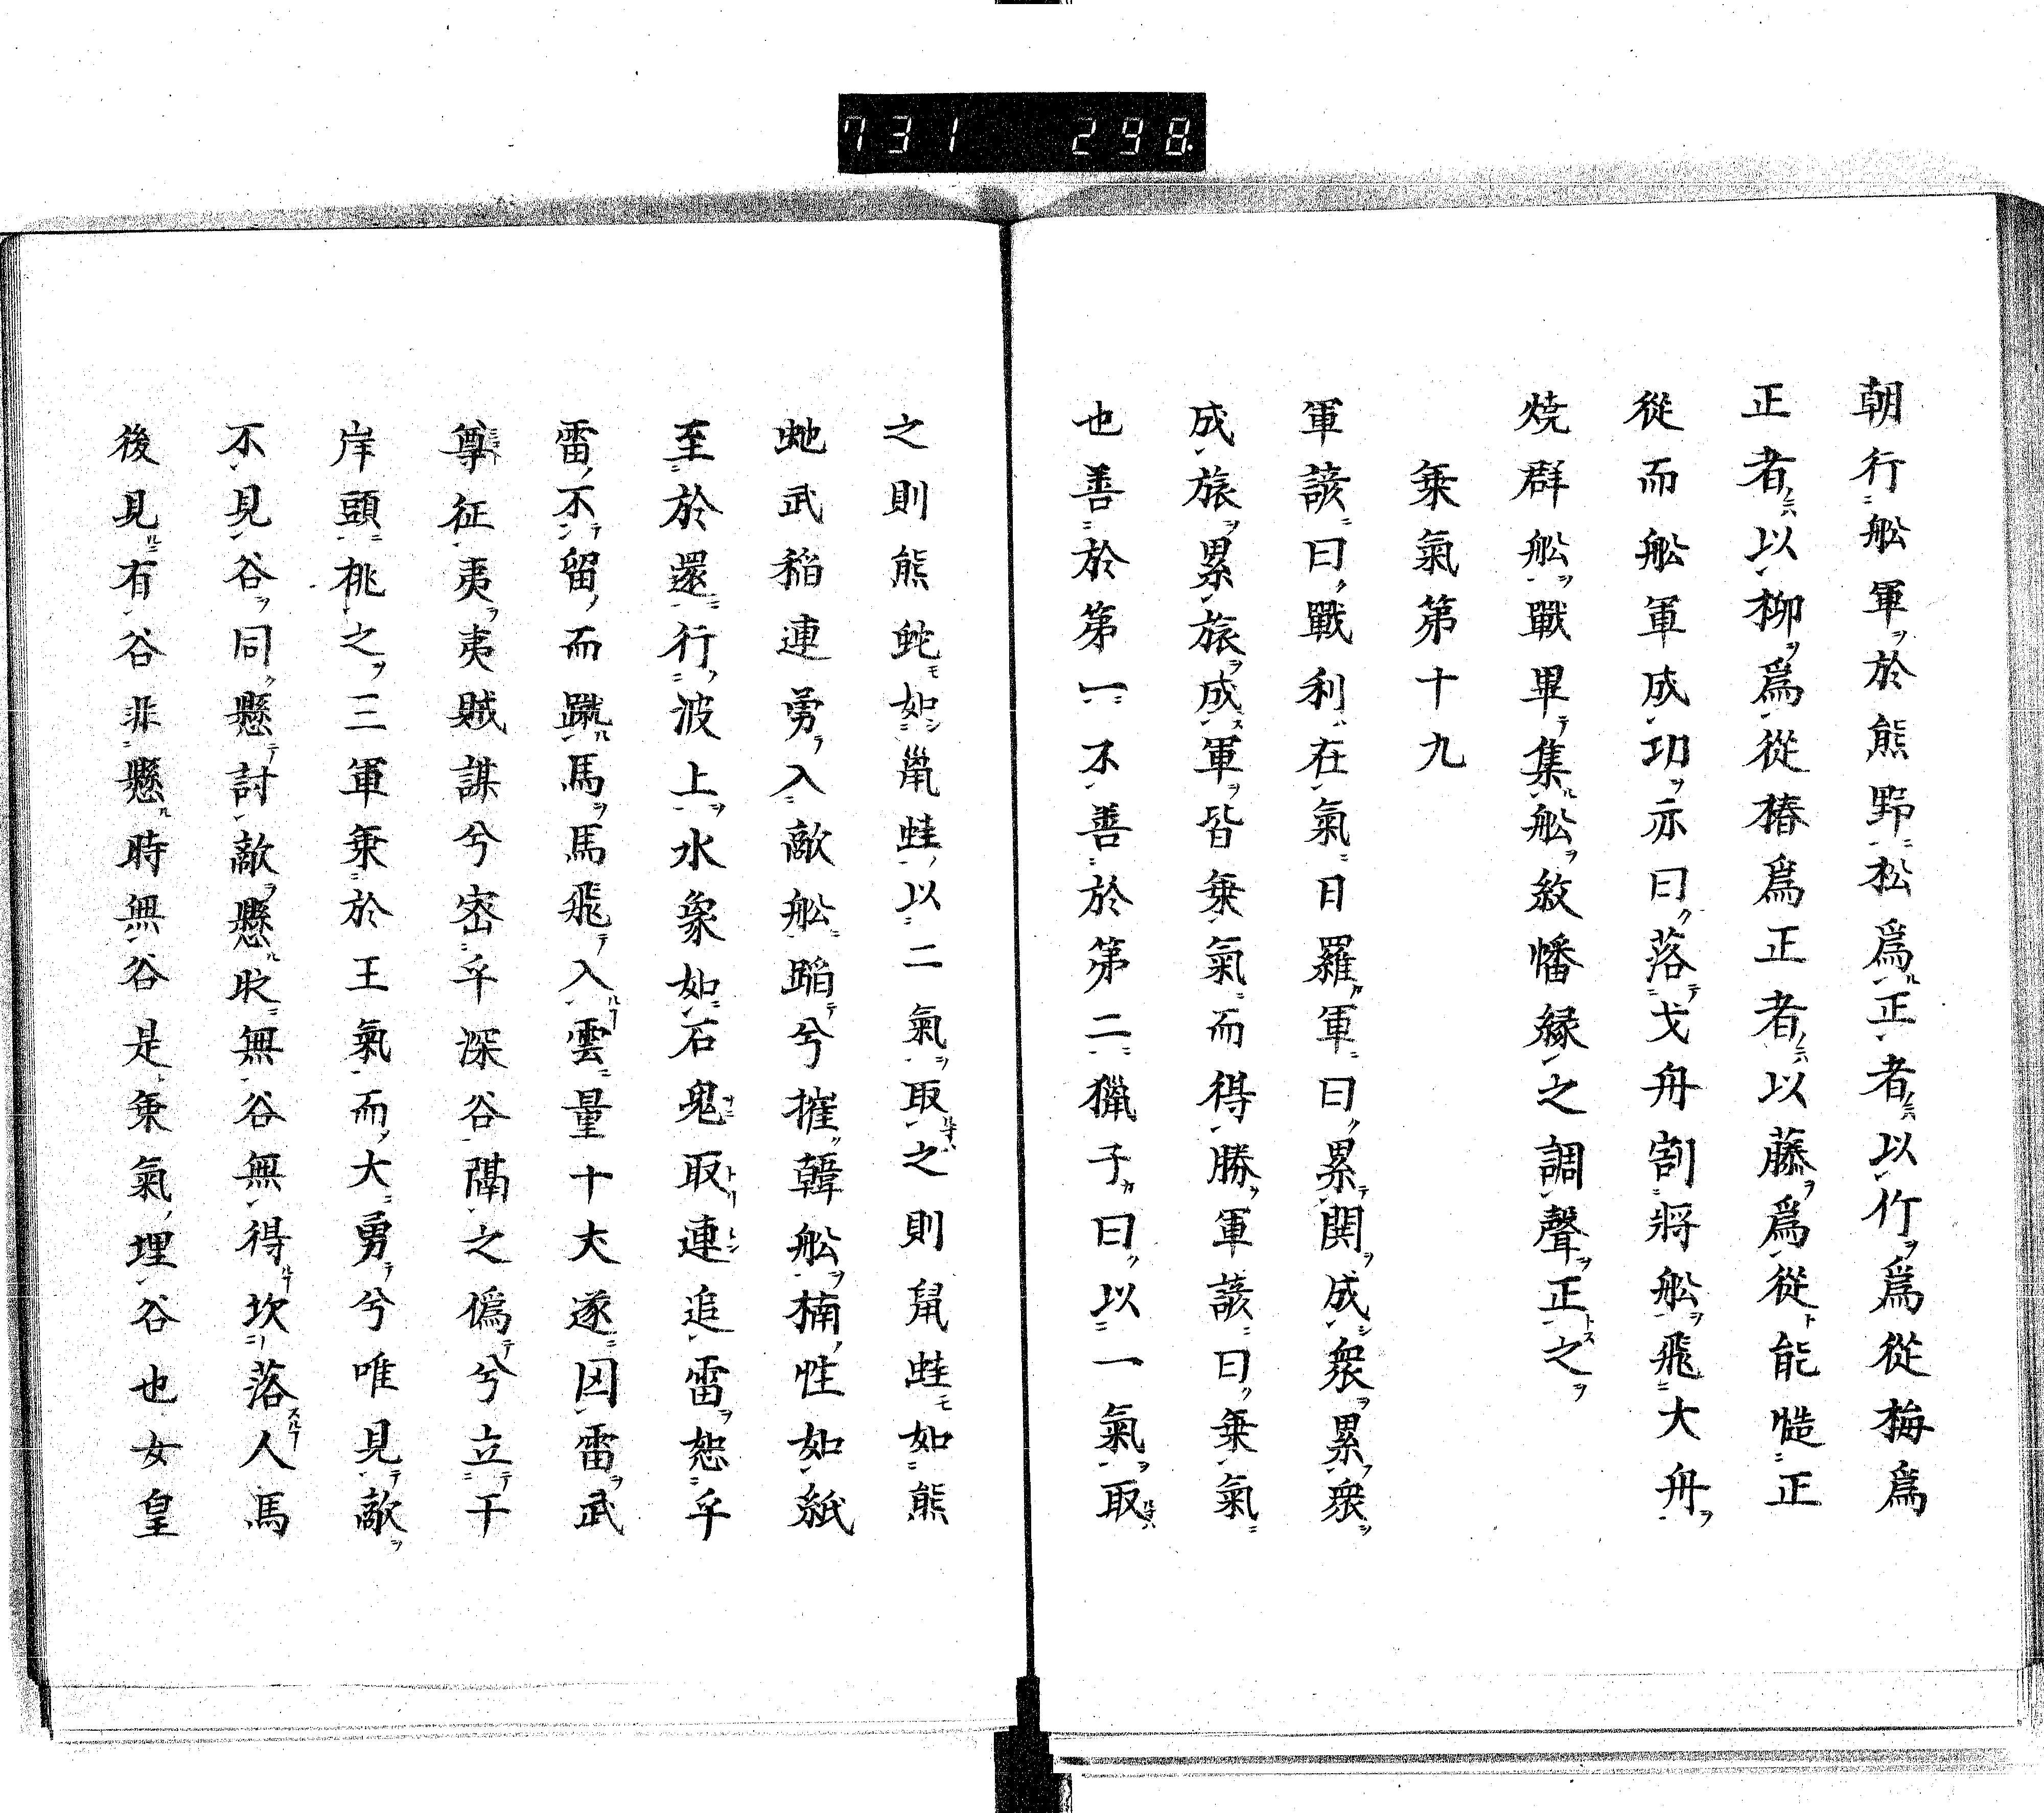 731 298
朝行舩軍於熊野松爲正者以竹爲從梅爲
正者以柳爲從椿爲正者以藤爲從能慥正
從而舩軍成功亦曰落戈舟割將舩飛大舟
燒群舩戰畢集舩紋幡緣之調聲正之
乗氣第十九
軍談曰戰利在氣日羅軍曰累関成衆累衆
成旅累旅成軍皆乗氣而得勝軍談曰乗氣
也善於第一不善於第二獵子曰以一氣取
之則熊蛇如鼠蛙以二氣取之則鼠蛙如熊
虵武稲連勇入敵舩蹈兮摧韓舩楠性如紙
至於還行波上水象如石鬼取連追雷恕乎
雷不留而蹴馬馬飛入雲量十丈遂囚雷武
尊征夷夷賊謀兮密乎深谷隔之僞兮立干
岸頭桃之三軍乗於王氣而大勇兮唯見敵
不見谷同懸討敵懸時無谷無得坎落人馬
後見有谷非懸時無谷是乗氣埋谷也女皇